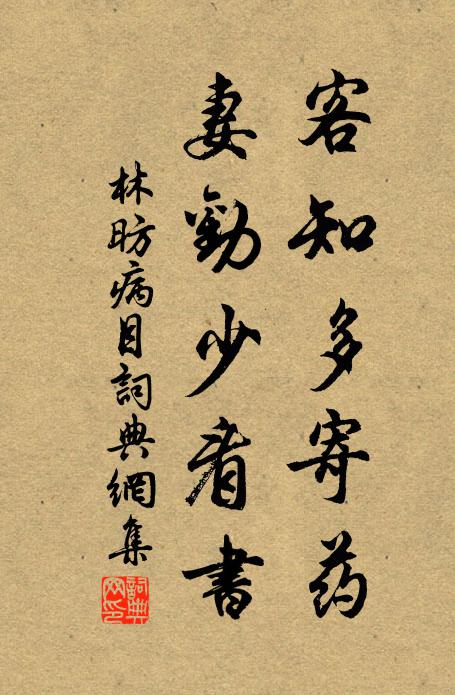 客知多寄药
妻勸少看書
林昉病目詞典網集
詞典网印